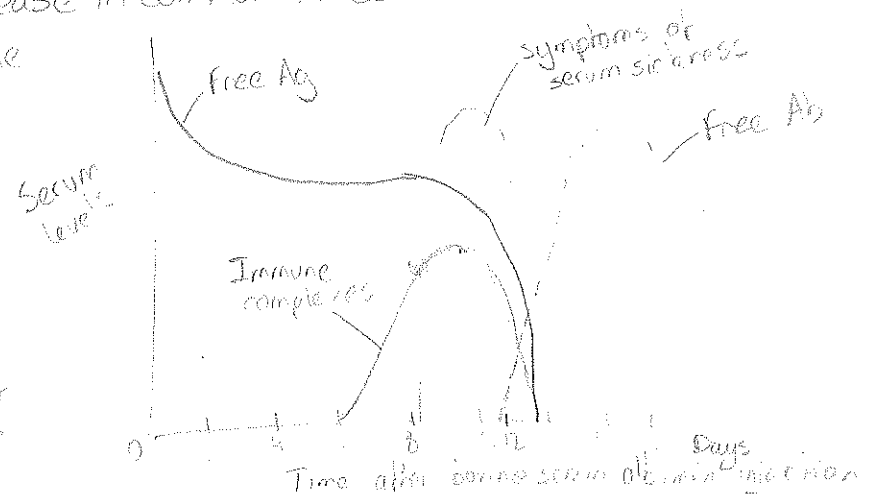 Free Ag
symptoms of
serum sickness
Free Ab
Serum
levels
Immune
complexes
0 4 8 12
Days
Time after bovine serum albumin injection